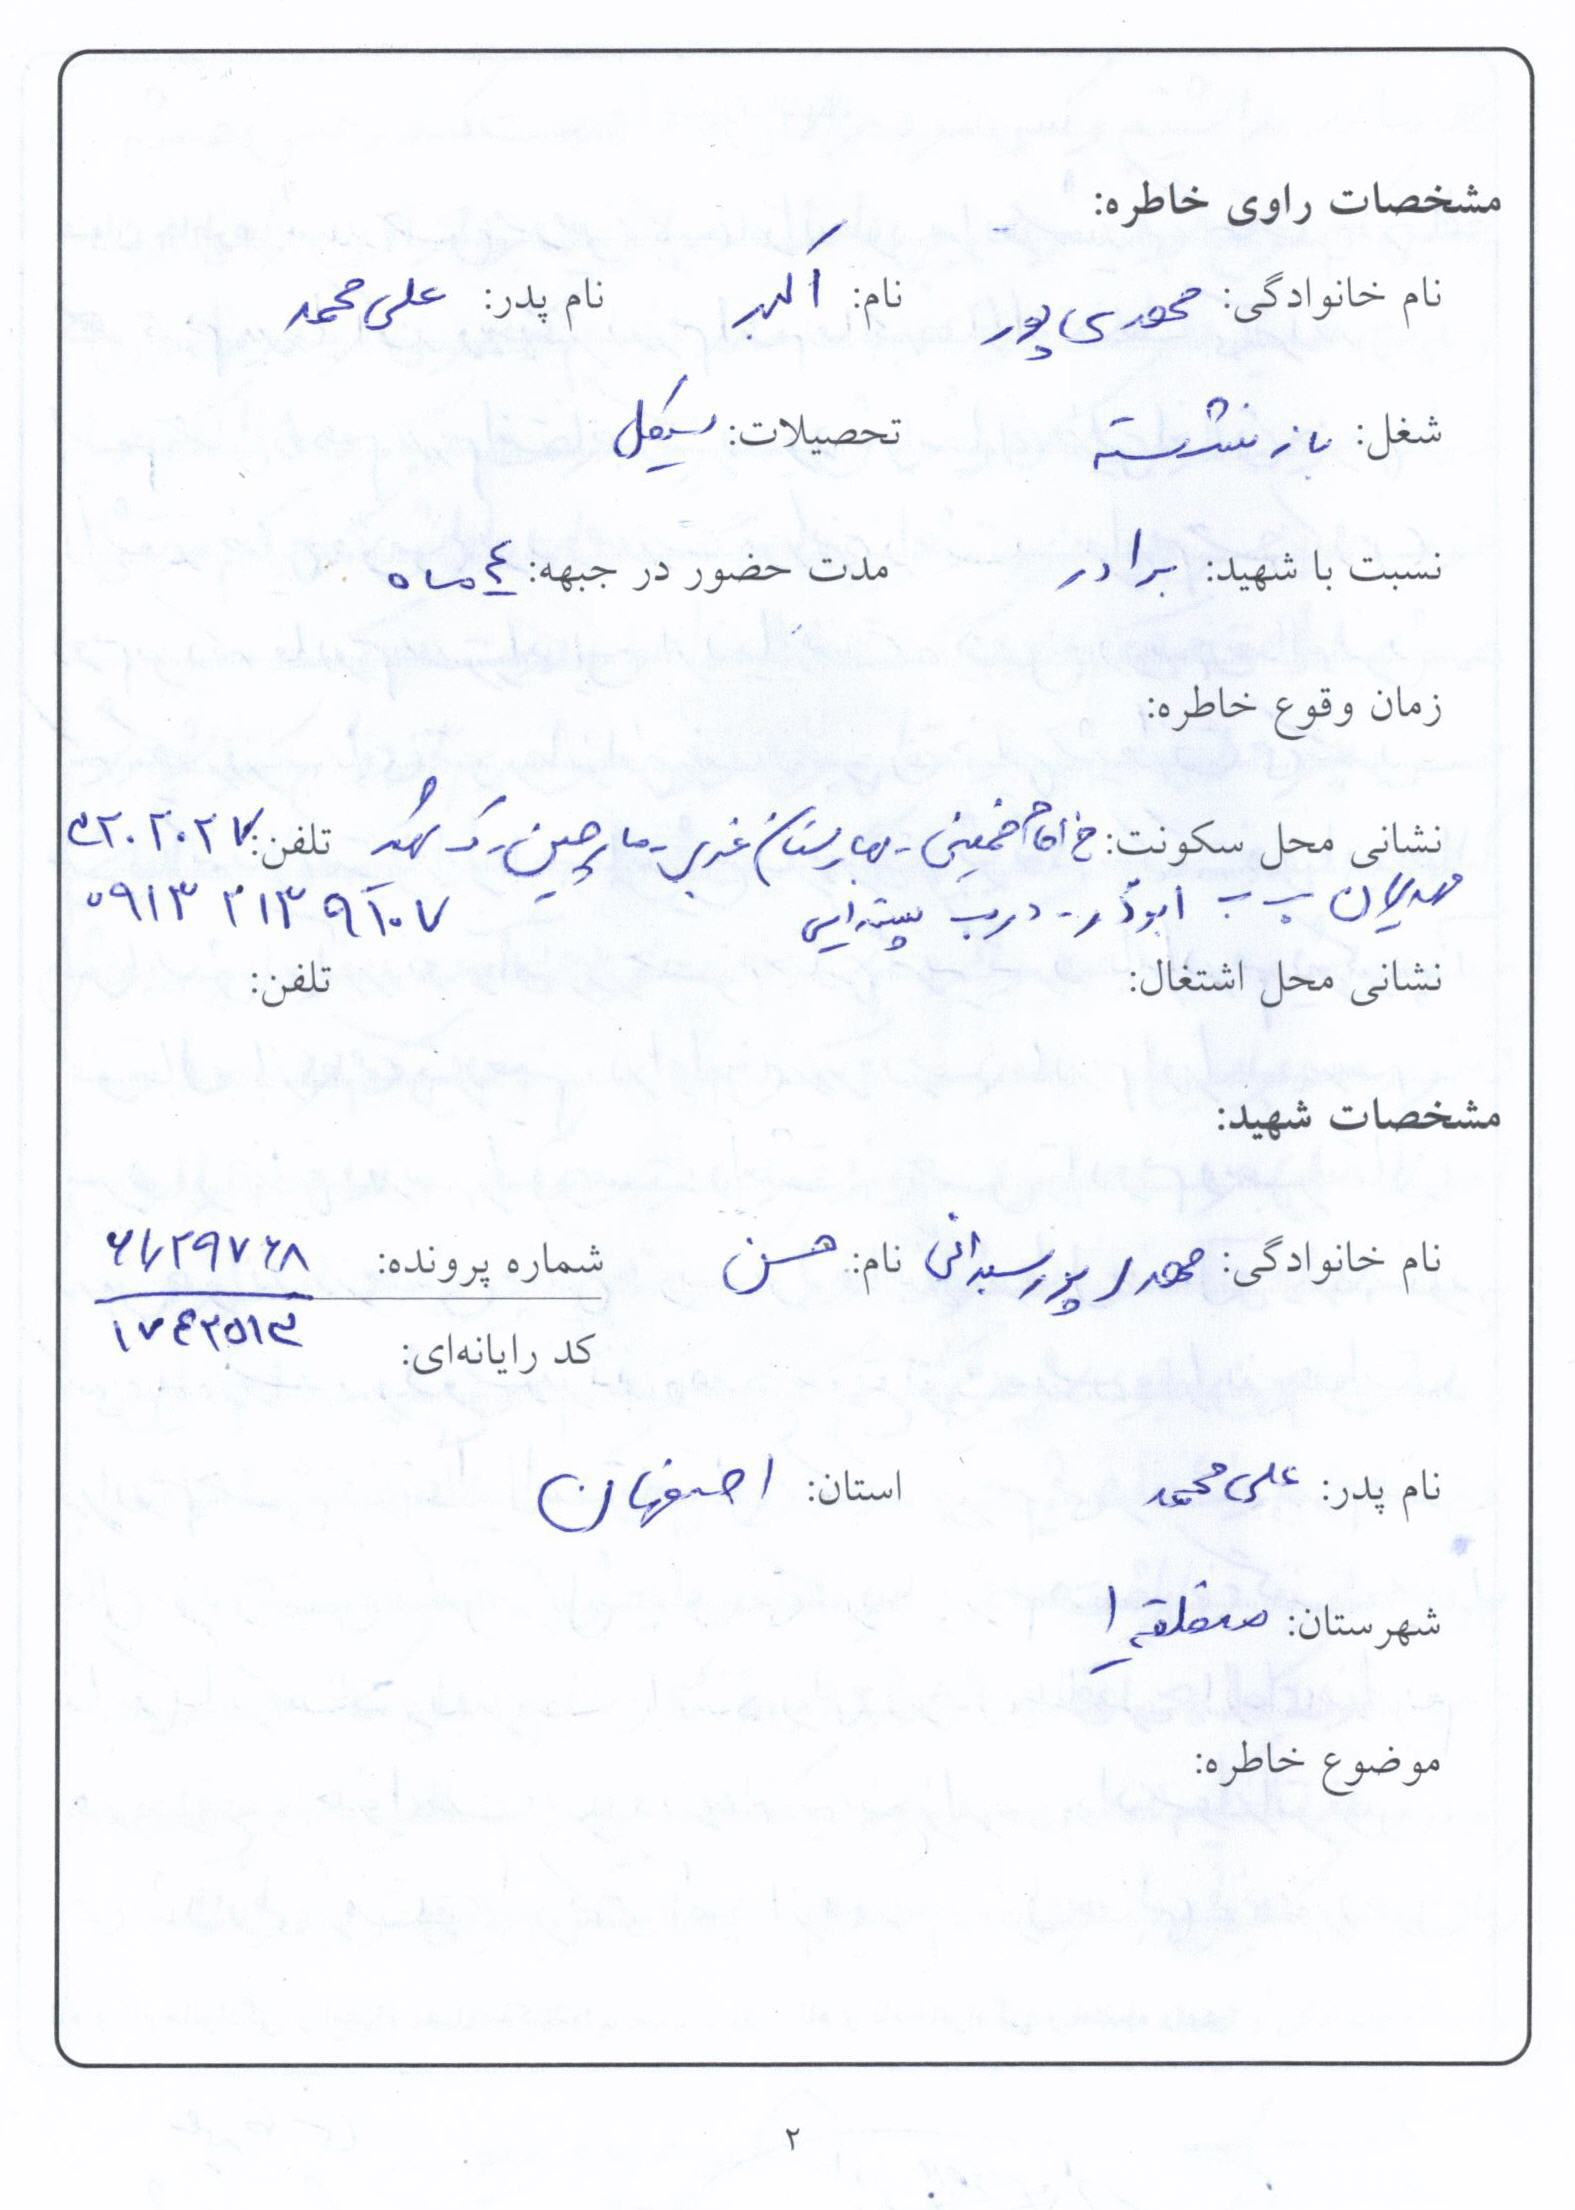 مشخصات راوی خاطره:
نام خانوادگی: محمودی پور نام: اکبر نام پدر: علی محمد
شغل: بازنشسته تحصیلات: سیکل
نسبت با شهید: برادر مدت حضور در جبهه: ٤ ماه
زمان وقوع خاطره:
نشانی محل سکونت: خ امام خمینی - بهارستان غربی - مارچین - ک شهید تلفن:
ب ب ابوذر - درب پسته ایی
نشانی محل اشتغال: تلفن:
مشخصات شهید:
نام خانوادگی: نام: حسن شماره پرونده: ۶۱۲۹۷۶۸
کد رایانه‌ای: ۱۷٤۲۵۱۳
نام پدر: علی محمد استان: اصفهان
شهرستان: منطقه ۱
موضوع خاطره:
۲